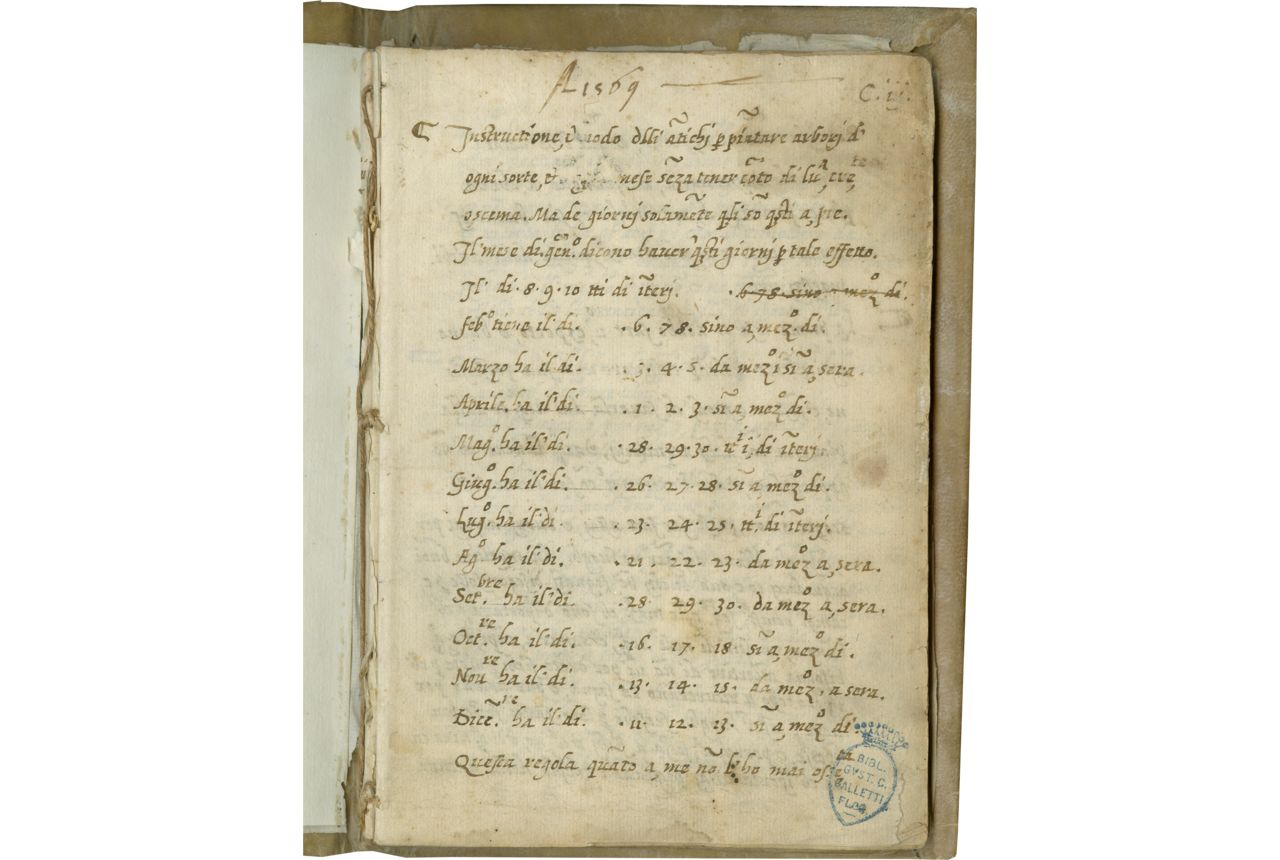 A 1569
C. iij.
Instructione, ὺ modo dlli ãtichi p piãtare arborj d'
ogni sorte, et mese seza tener cõto di luᵃ, creᵗᵉ,
o scema. Ma de giornj solamẽte q̃li sõ q̃sti a, pie.
Il mese di genᵒ. dicono haver q̃sti giornj p tale effetto.
Il di · 8 · 9 · 10 tti di ĩterj. · 6 7 8 · sino a mezᵒ di.
febᵒ tiene il di. · 6 · 7 8 · sino a, mezᵒ. di.
Marzo ha il di. · 3 · 4 · 5 · da mezᵒ ĩ sĩ a, sera.
Aprile. ha il di. · 1 · 2 · 3 · sĩ a, mezᵒ di.
Magᵒ. ha il di. · 28 · 29 · 30 · ttⁱ, di ĩterj.
Giugᵒ. ha il di. · 26 · 27 · 28 · sĩ a, mezᵒ di.
Lugᵒ. ha il di. · 23 · 24 · 25 · ttⁱ, di ĩterj.
Agᵒ ha il di. · 21 · 22 · 23 · da mezᵒ a, sera.
Setᵇʳᵉ. ha il di. · 28 · 29 · 30 · da mezᵒ a, sera.
Octʳᵉ. ha il di. · 16 · 17 · 18 sĩ a, mezᵒ di.
Nouʳᵉ ha il di. · 13 · 14 · 15 · da mezᵒ, a sera.
Dicẽʳᵉ. ha il di. · 11 · 12 · 13 · sĩ a, mezᵒ di.
Questa regola quãto a, me nõ l'ho mai osseᵗᵃ
BIBL.
GVST. C.
GALLETTI
FLOR.